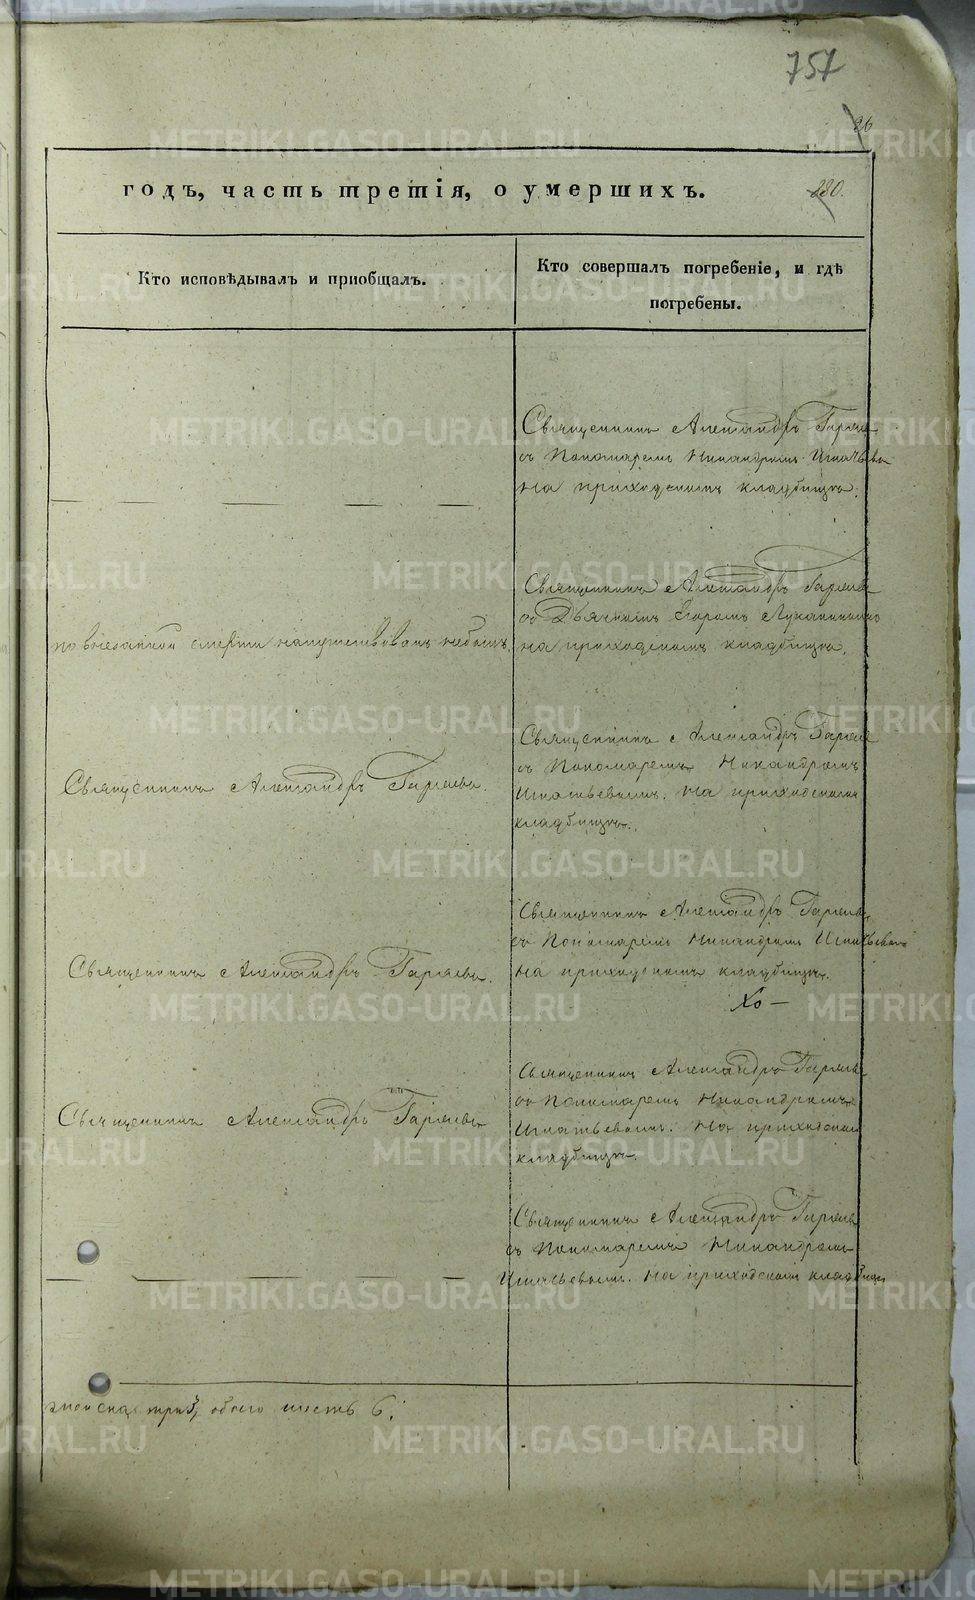 757
26
годъ, часть третія, о умершихъ.
280.
Кто исповѣдывалъ и пріобщалъ.
Кто совершалъ погребеніе, и гдѣ
погребены.
Священникъ Александръ Гаряевъ
съ Пономаремъ Никандромъ Игнатьевы
на приходскомъ кладбищѣ.
Священникъ Александръ Гаряевъ
со Дьячкомъ Егоромъ Луканинымъ
на приходскомъ кладбищѣ.
по внезапной смерти напутствованъ небылъ.
Священникъ Александръ Гаряевъ
съ Пономаремъ Никандромъ
Игнатьевымъ. На приходскомъ
кладбищѣ.
Священникъ Александръ Гаряевъ.
Священникъ Александръ Гаряевъ
съ Пономаремъ Никандромъ Игнатьевымъ
на приходскомъ кладбищѣ.
Священникъ Александръ Гаряевъ.
Священникъ Александръ Гаряевъ
со Пономаремъ Никандромъ
Игнатьевымъ. На приходскомъ
кладбищѣ.
Священникъ Александръ Гаряевъ
Священникъ Александръ Гаряевъ
съ Пономаремъ Никандромъ
Игнатьевымъ. На приходскомъ кладбищѣ
женска три 3, обоего шесть 6.
METRIKI.GASO-URAL.RU